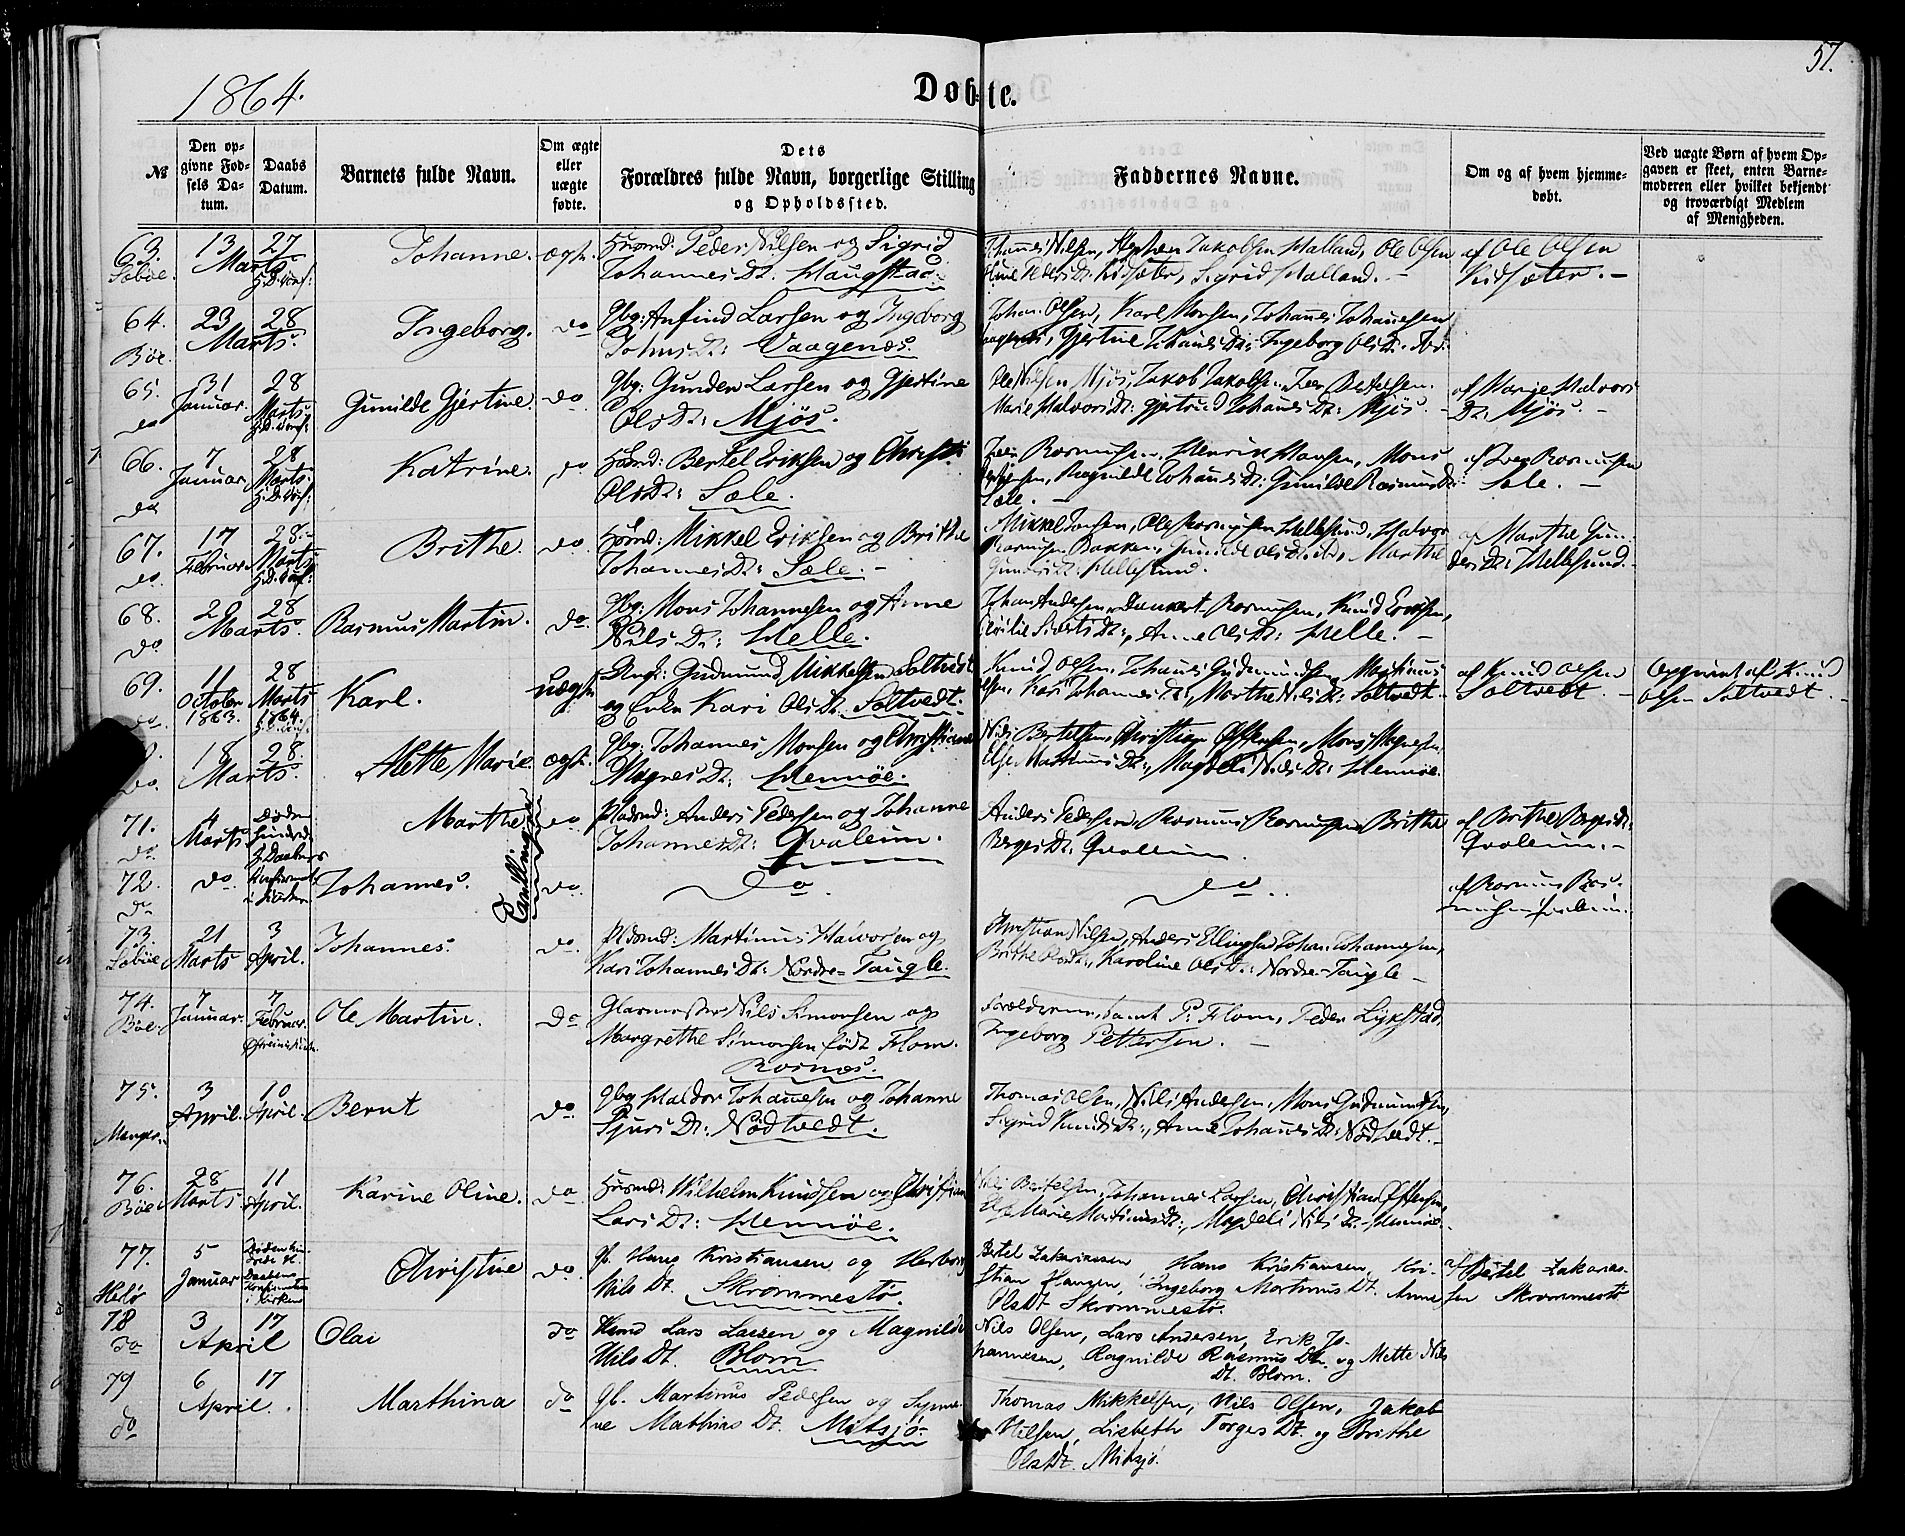 1864.
Døbte.
57.
№
Den opgivne Fødsels Datum.
Daabs Datum.
Barnets fulde Navn.
Om ægte eller uægte fødte.
Dets Forældres fulde Navn, borgerlige Stilling og Opholdssted.
Faddernes Navne.
Om og af hvem hjemmedøbt.
Ved uægte Børn af hvem Opgaven er skeet, enten Barnemoderen eller hvilket bekjendt og troværdigt Medlem af Menigheden.
63. 13 27 Johanne. ægt. Huusmd: Peder Nilsen og Sigrid
Marts Johannes Dt: Haugstad.
Johannes Nilsen, Jakobsen Halland, Ole Olsen
Peders Dt: Kidsæter, Sigrid Halland. -
af Ole Olsen
Kidsæter. -
64. 23 28 Ingeborg. do Gbg: Anfind Larsen og Ingeborg
Bøe. Marts. Johns Dt: Vaagenæs.
Johan Olsen, Karl Monsen, Johannes Johannesen
Gjertine Johannes Dt: Ingeborg Ols Dt:
65. 31 28 Gunilde Gjertine. do Gbg: Gunder Larsen og Gjertine
do Januar. Marts Ols Dt: Mjøs.
Ole Nilsen Mjøs, Jakob Jakobsen, Iver Bertelsen.
Marie Halvors Dt: Gjertrud Johannes Dt: Mjøs. -
af Marie Halvors
Dt: Mjøs. -
66. 7 28 Katrine. do Huusmd: Bertel Eriksen og Christi
do Januar. Marts. Ols Dt: Sæle.
Iver Rasmusen, Henrik Hansen, Mons
Ragnilde Johannes Dt: Gunilde Rasmus Dt:
Sæle. -
af Iver Rasmusen
Sæle. -
67. 17 28 Brithe. do Huusmd: Mikkel Eriksen og Brithe
do Februar Marts Johannes Dt: Sæle. -
Mikkel Ole Rasmusen Hellesund, Halvor
Rasmusen Bakken, Gunilde Ols Dt: Marthe
Gunders Dt: Hellesund.
af Marthe Gun-
ders Dt: Hellesund. -
68. 20 28 Rasmus Martin. do Gbg: Mons Johannesen og Anne
do Marts. Nils Dt: Helle.
Johan Andersen, Dankert Rasmusen, Knud Eriksen,
Anne Ols Dt: Helle. -
69. 11 28 Karl. uægte Ungk: Gudmund Mikkelsen Soltvedt
do October Marts og Enke Kari Ols Dt: Soltvedt.
1863. 1864.
Knud Olsen, Johannes Gudmundsen, Martinus
Olsen, Kari Johannes Dt: Marthe Nils Dt: Soltvedt.
af Knud Olsen
Soltvedt. -
Opgivet af Knud
Olsen Soltvedt. -
18 28 Alette Marie ægt. Gbg: Johannes Monsen og Christiane
do Marts. Magnes Dt: Hennøe.
Nils Bertelsen, Christian Offersen, Mons Magnesen,
Else Martinus Dt:, Magdeli Nils Dt: Hennøe.
71. 4 Døden hindrede Daabens Marthe do Pladsmd: Anders Pedersen og Johanne
do Marts Johannes Dt: Qvaleim.
Anders Pedersen, Rasmus Rasmusen, Brithe
Berges Dt: Qvaleim.
af Brithe Berges Dt:
Qvaleim. -
72. do Konfirmat: i Kirken Johannes. do do
do
Tvillinger
do.
af Rasmus Ras-
musen Qvaleim.
73 21 3 Johannes. do Pladsmd: Martinus Halvorsen og
Marts April. Kari Johannes Dt: Nordre-Tangle.
Christian Nilsen, Anders Ellingsen, Johan Johannesen,
Brithe Ols Dt:, Karoline Ols Dt: Nordre-Tangle -
74. 7 7 Ole Martin. do Glarmester Nils Simonsen og
Bøe. Januar. Februar. Margrethe Simonsen født Flom.
Rosnæs.
Forældrene, samt P. Flom, Peder Lykstad,
Ingeborg Pettersen. -
75. 3 10 Bernt do Gbg Haldor Johannesen og Johanne
Manger. April. April. Sjurs Dt: Nødtvedt.
Thomas Olsen, Nils Andersen, Mons Gudmundsen,
Sigrid Knuds Dt:, Anne Johannes Dt: Nødtvedt. -
76. 28 11 Karine Oline. do Huusmd: Wilhelm Knudsen og Christiane
Bøe Marts April. Lars Dt: Hennøe.
Nils Bertelsen, Johannes Larsen, Christian Offersen,
Else Marie Martinus Dt:, Magdeli Nils Dt. Hennøe.
77. 5 Døden hindrede Daabens Konfirmation i Kirken Christine do Gb. Hans Kristiansen og Herborg
Herlø Januar Nils Dt. Skrommestø.
Bertel Zakariasen Hans Kristiansen, Kri-
stian Hansen, Ingeborg Martinus Dt. Anne
Ols Dt Skrommestø.
af Bertel Zakarias-
sen Skrommestø
78 3 17 Olai do Hsmd Lars Larsen og Magnilde
do April Nils Dt. Blom
Nils Olsen, Lars Andersen, Erik Jo-
hannesen, Ragnilde Rasmus Dt. og Mette Nils
Dt. Blom.
79 6 17 Marthina do Gb. Martinus Pedersen og Synne-
do April. ve Mathias Dt. Mitsjø.
Thomas Mikkelsen, Nils Olsen, Jakob
Nilsen, Lisbeth Torges Dt. og Brithe
Ols Dt. Mitsjø.